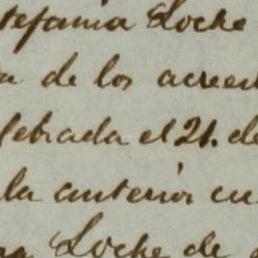 tefania Loche
a de los acree
lebrada el 21. de
la anterior en
Loche de